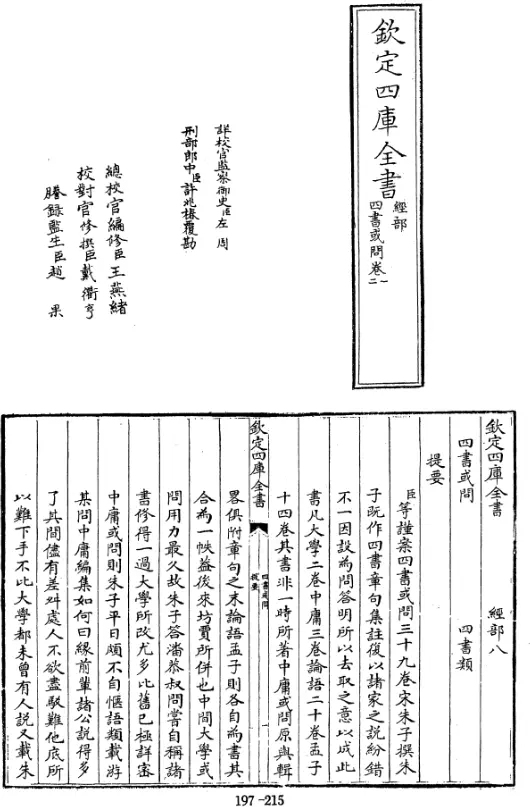 欽定四庫全書
經部
四書或問卷一
二
詳校官監察御史臣左周
刑部郎中臣許兆椿覆勘
總校官編修臣王燕緒
校對官修撰臣戴衢亨
謄錄監生臣趙杲
欽定四庫全書 經部八
四書或問 四書類
提要
臣等謹案四書或問三十九卷宋朱子撰朱
子旣作四書章句集註復以諸家之說紛錯
不一因設為問答明所以去取之意以成此
書凡大學二卷中庸三卷論語二十卷孟子
十四卷其書非一時所著中庸或問原與輯
欽定四庫全書
四書或問
提要
一
畧俱附章句之末論語孟子則各自為書其
合為一帙蓋後來坊賈所併也中間大學或
問用力最久故朱子答潘恭叔問嘗自稱諸
書修得一過大學所改尤多比舊已極詳密
中庸或問則朱子平日頗不自愜語類載游
某問中庸編集如何曰緣前輩諸公說得多
了其間儘有差舛處人不欲盡駁難他底所
以難下手不比大學都未曾有人説又載朱
197-215